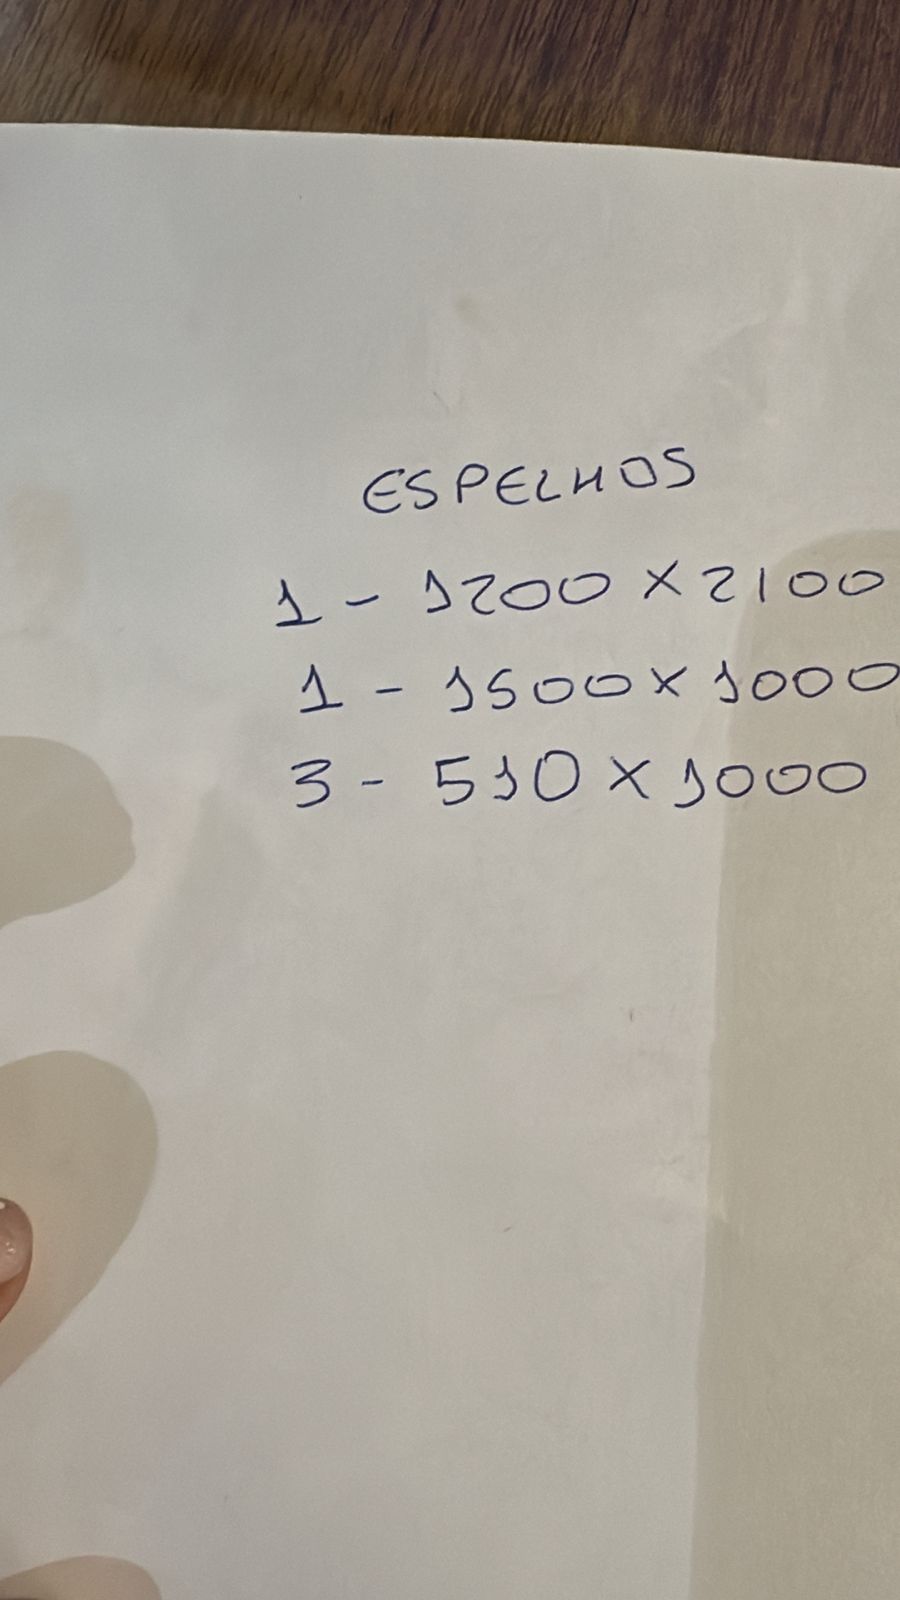 ESPELHOS
1 - 1200 X 2100
1 - 1500 X 1000
3 - 510 X 1000